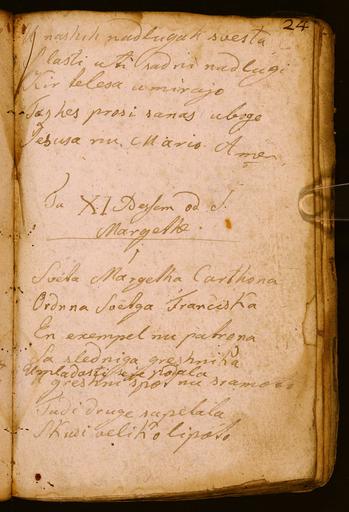 24
V nashih nadlugah svesta
Slasti u ti sadni nadlugi
Kir telesa umirajo
Tashes prosi sanas uboge
Jesusa nu Mario. Amen
Ta XI Pessem od S.
Margethe.
Sveta Margetha Carthona
Ordnna Svetga Franciska
En exempel nu patrona
Sa sledniga greshnika
Vmpladosti se je podala
V greshni spot nu sramoto
Tudi druge sapelala
Skusi veliko lipoto